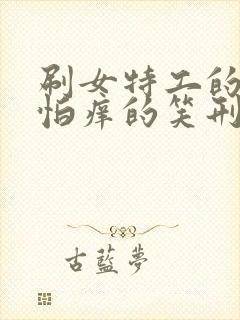 刷女特工的
怕痒的笑刑
古蓝梦